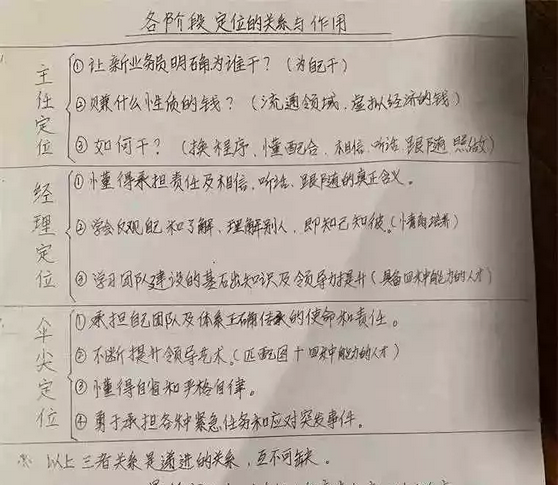 各阶段定位的关系与作用
主任定位
①让新业务员明确为谁干？（为自己干）
②赚什么性质的钱？（流通领域、虚拟经济的钱）
③如何干？（换程序、懂配合、相信、听话、跟随、照做）
经理定位
①懂得承担责任及相信、听话、跟随的真正含义。
②学会反观自己和了解、理解别人，即知己知彼。（情商培养）
③学习团队建设的基石出知识及领导力提升（具备四术中能力的人才）
伞尖定位
①承担自己团队及体系正确传承的使命和责任。
②不断提升领导艺术。（匹配团十四术中能力的人才）
③懂得自省和严格自律。
④勇于承担各种紧急任务和应对突发事件。
※ 以上三者关系是递进的关系，互不可缺。